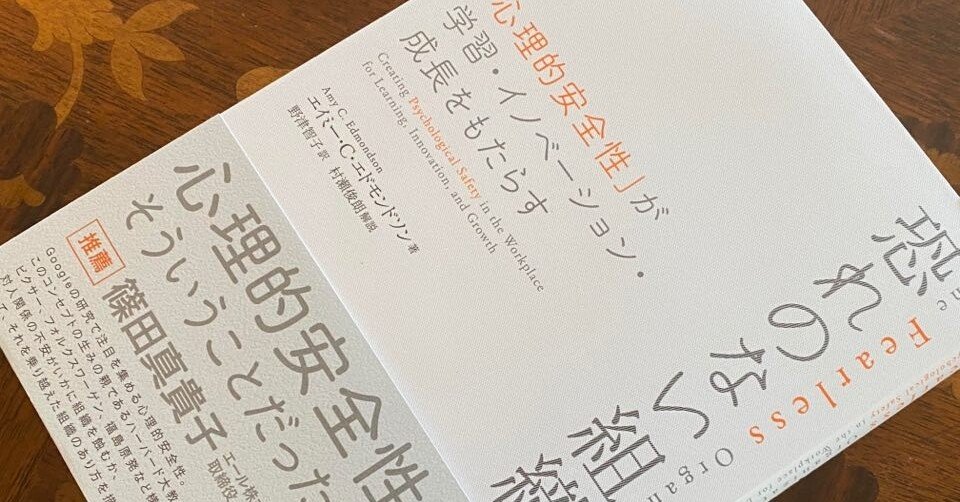 恐れのない
組織
The
Fearless
Organ
「心理的安全性」が
学習・イノベーション・
成長をもたらす
Creating Psychological Safety in the Workplace
for Learning, Innovation, and Growth
Amy C. Edmondson
エイミー・C・エドモンドソン 著
野津智子 訳 村瀬俊朗 解説
心理的安全性
そういうことだった
推薦
篠田真貴子
エール株
取締役
Googleの研究で注目を集める心理的安全性。
このコンセプトの生みの親であるハーバード大教
ピクサー、フォルクスワーゲン、福島原発など様
対人関係の不安がいかに組織を蝕むか、
て、それを乗り越えた組織のあり方を描